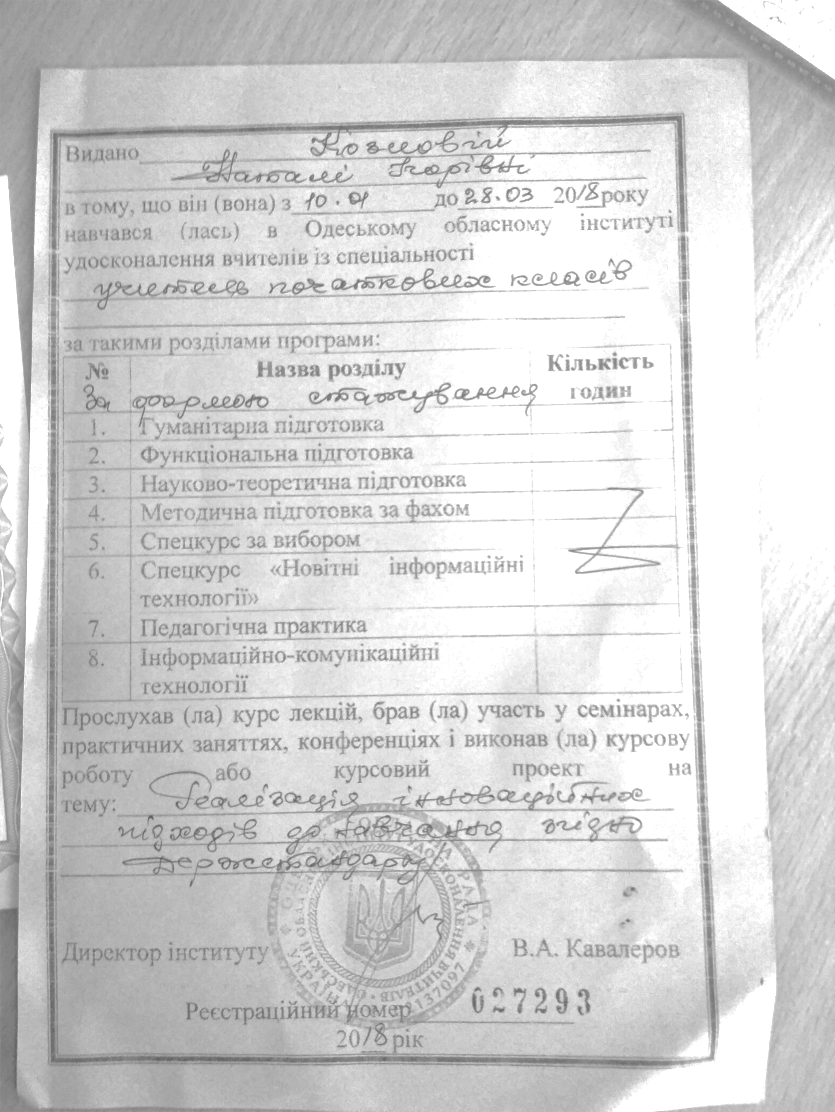 Видано Козловій
Наталі Ігорівні
в тому, що він (вона) з 10.01 до 28.03 2018 року
навчався (лась) в Одеському обласному інституті
удосконалення вчителів із спеціальності
учитель початкових класів
за такими розділами програми:
№ Назва розділу Кількість годин
За формою стажування
1. Гуманітарна підготовка
2. Функціональна підготовка
3. Науково-теоретична підготовка
4. Методична підготовка за фахом
5. Спецкурс за вибором
6. Спецкурс «Новітні інформаційні
технології»
7. Педагогічна практика
8. Інформаційно-комунікаційні
технології
Прослухав (ла) курс лекцій, брав (ла) участь у семінарах,
практичних заняттях, конференціях і виконав (ла) курсову
роботу або курсовий проект на
тему: Реалізація інноваційних
підходів до навчання згідно
Держстандарту
Директор інституту В.А. Кавалеров
Реєстраційний номер 027293
2018 рік